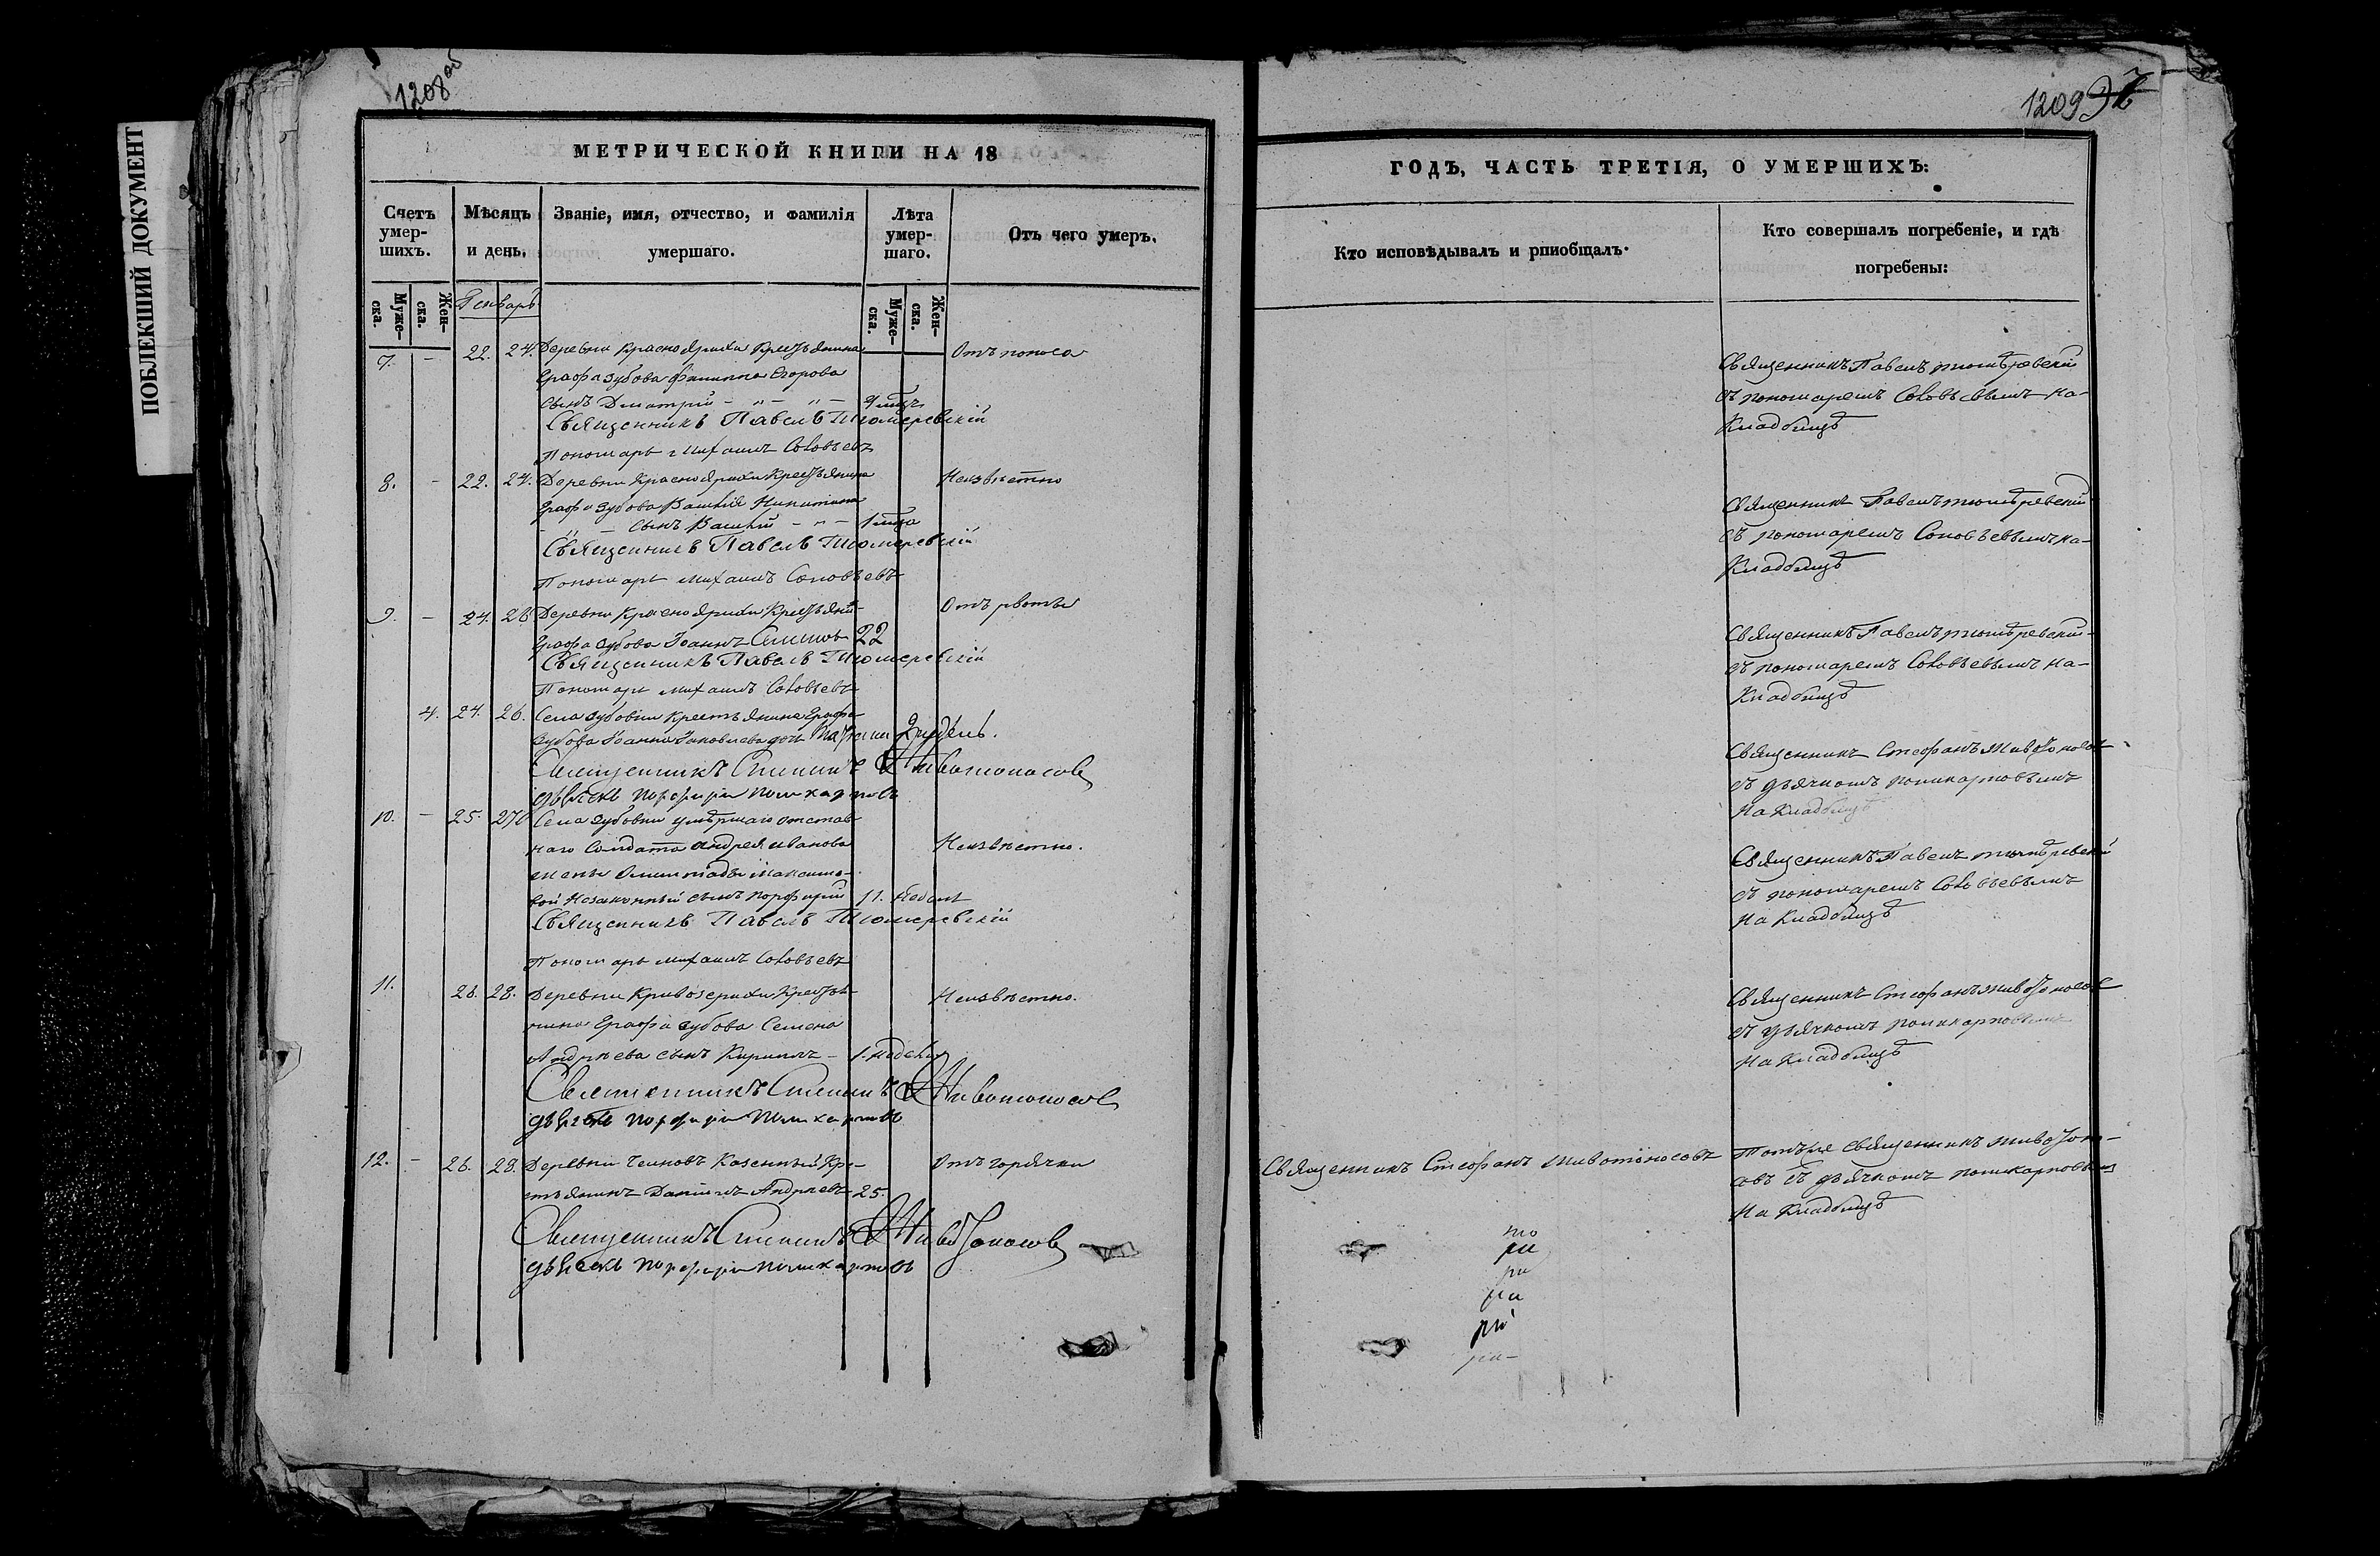 ПОБЛЕКШИЙ ДОКУМЕНТ
1208 об
МЕТРИЧЕСКОЙ КНИГИ НА 18
Счетъ умер-шихъ.
Мѣсяцъ и день.
Званіе, имя, отчество, и фамилія умершаго.
Лѣта умер-шаго.
Отъ чего умеръ.
Муже-ска.
Жен-ска.
Генварь
Муже-ска.
Жен-ска.
7. - 22. 24. Деревни Красноярихи Крестьянина Отъ поноса
Графа Зубова Филиппа Егорова
сынъ Дмитрій
Священникъ Павелъ Тюмеревскій
Пономарь Михаилъ Соловьевъ
8. - 22. 24. Деревни Красноярихи Крестьянина Неизвѣстно
Графа Зубова Василія Никитина
сынъ Василій - 1 мѣсяца
Священникъ Павелъ Тюмеревскій
Пономарь Михаилъ Соловьевъ
9. - 24. 26. Деревни Красноярихи Крестьянинъ Отъ рвоты
Графа Зубова Іоаннъ 22
Священникъ Павелъ Тюмеревскій
Пономарь Михаилъ Соловьевъ
4. 24. 26. Села Зубовки Крестьянина Графа
Зубова Іоанна Яковлева дочь 2 недѣль.
Священникъ Стефанъ Животоносовъ
дьячекъ Порфирій Поликарповъ
10. - 25. 27. Села Зубовки умершаго отстав-
наго Солдата Андрея Иванова Неизвѣстно.
жены Олимпіады Максимо-
вой Незаконный сынъ Порфирій 11. недель
Священникъ Павелъ Тюмеревскій
Пономарь Михаилъ Соловьевъ
11. 26. 28. Деревни Кривозерихи Крестья- Неизвѣстно.
нина Графа Зубова Семена
Андрѣева сынъ Кириллъ - 1. недели
Священникъ Стефанъ Животоносовъ
дьячекъ Порфирій Поликарповъ
12. - 26. 28. Деревни Казенный Кре- Отъ горячки
стьянинъ Даніилъ Андрѣевъ 25.
Священникъ Стефанъ Животоносовъ
дьячекъ Порфирій Поликарповъ
1209
ГОДЪ, ЧАСТЬ ТРЕТІЯ, О УМЕРШИХЪ:
Кто исповѣдывалъ и рпиобщалъ.
Кто совершалъ погребеніе, и гдѣ погребены:
Священникъ Павелъ Тюмѣревскій
съ пономаремъ Соловьевымъ на-
Кладбищѣ
Священникъ Павелъ Тюмѣревскій
съ пономаремъ Соловьевымъ на-
Кладбищѣ
Священникъ Павелъ Тюмѣревскій
съ пономаремъ Соловьевымъ на-
Кладбищѣ
Священникъ Стефанъ Животоносовъ
съ дьячкомъ Поликарповымъ
На Кладбищѣ
Священникъ Павелъ Тюмѣревскій
съ пономаремъ Соловьевымъ
На Кладбищѣ
Священникъ Стефанъ Животоносовъ
съ дьячкомъ Поликарповымъ
На Кладбищѣ
Священникъ Стефанъ Животоносовъ
Тотъ же Священникъ Животоно-
совъ съ дьячкомъ Поликарповымъ
На Кладбищѣ